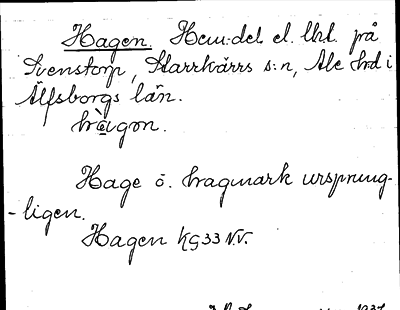 Hagen. Hem:del el. lht. på
Svenstorp, Starrkärrs s:n, Ale hrd i
Älfsborgs län.
hàgon.
Hage o. hagmark ursprung-
-ligen.
Hagen KG33 N.V.